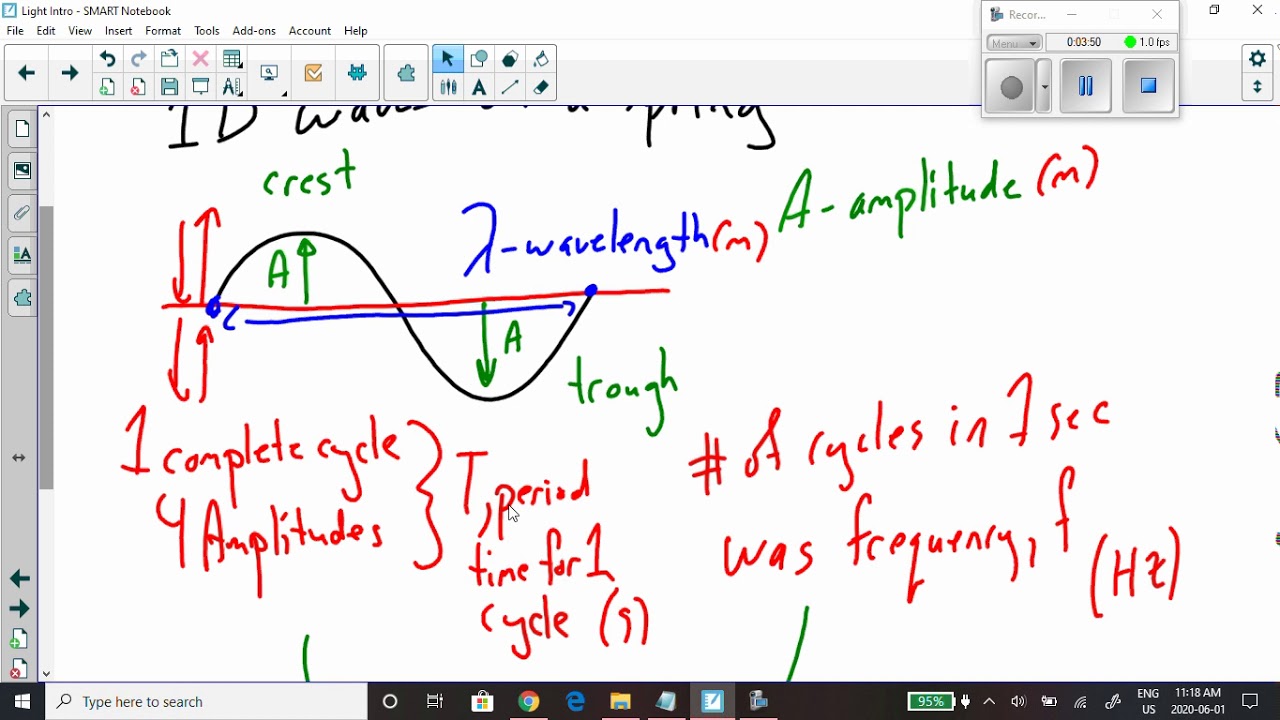 Light Intro - SMART Notebook
File Edit View Insert Format Tools Add-ons Account Help
Recor...
Menu
0:03:50
1.0 fps
1D waves on a spring
crest
A
λ-wavelength (m)
A - amplitude (m)
A
trough
1 complete cycle
4 Amplitudes
T, period
time for 1
cycle (s)
# of cycles in 1 sec
was frequency, f
(Hz)
Type here to search
95%
ENG
US
11:18 AM
2020-06-01